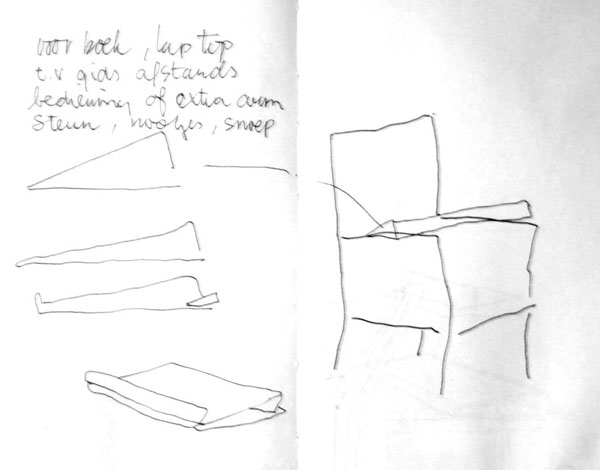 voor boek, laptop
t.v gids afstands
bediening of extra arm
steun, nootjes, snoep